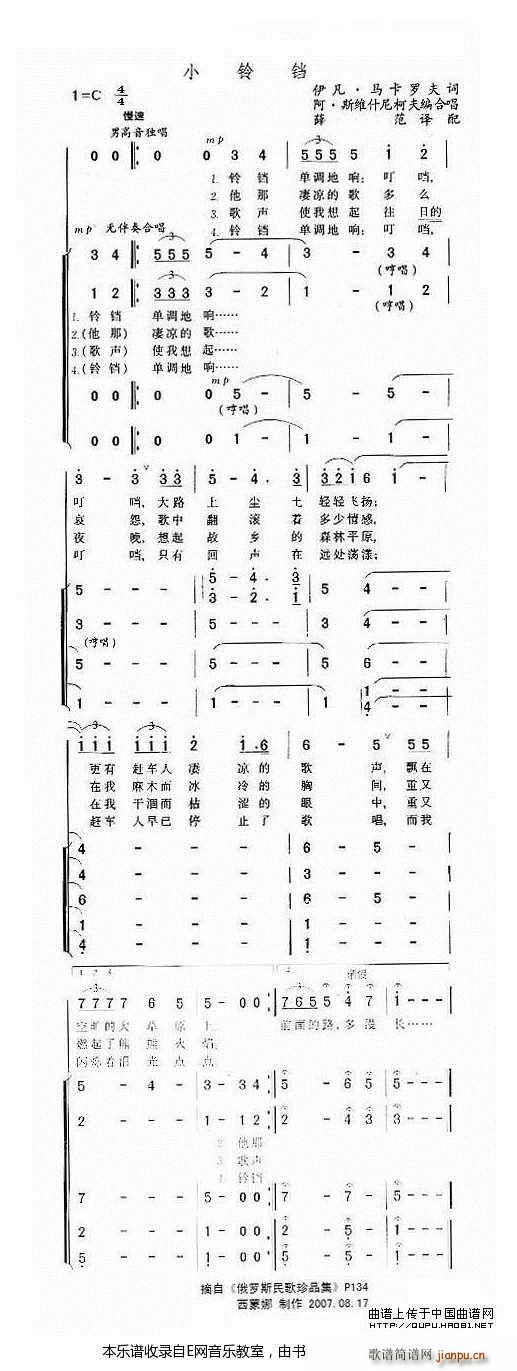 小 铃 铛
1=C 4/4
伊凡·马卡罗夫词
阿·斯维什尼柯夫编合唱
薛 范 译 配
慢速
男高音独唱
mp
0 0 0 0 3 4 5 5 5 5 i 2
1. 铃 铛 单调地 响; 叮 铛,
2. 他 那 凄凉的 歌 多 么
3. 歌 声 使我想 起 往 日的
4. 铃 铛 单调地 响; 叮 铛,
mp 无伴奏合唱
3 4 5 5 5 5 - 4 3 - 3 4
(哼唱)
1 2 3 3 3 3 - 2 1 - 1 2
(哼唱)
1. 铃 铛 单调地 响……
2.(他 那) 凄凉的 歌……
3.(歌 声) 使我想 起……
4.(铃 铛) 单调地 响……
mp
0 0 0 0 5 - 5 - 5 -
(哼唱)
0 0 0 0 1 - 1 - 1 -
3 - 3 3 3 5 - 4. 3 3 2 1 6 1 - -
叮 当, 大 路 上 尘 土 轻轻飞 扬;
哀 怨, 歌 中 翻 滚 着 多少情 感,
夜 晚, 想 起 故 乡 的 森林平 原,
叮 当, 只 有 回 声 在 远处荡 漾;
(哼唱)
1 1 1 1 1 1 2 1. 6 6 - 5 5 5
更 有 赶车人 凄 凉 的 歌 声, 飘 在
在 我 麻木而 冰 冷 的 胸 间, 重 又
在 我 干涸而 枯 涩 的 眼 中, 重 又
赶 车 人早已 停 止 了 歌 唱, 而 我
4 - - - 6 - 5 -
4 - - - 3 - - -
6 - - - 5 - - -
1 - - - 1 - - -
4 - - - 1 - - -
7 7 7 7 7 6 5 5 - 0 0 7 6 5 5 4 7 1 - - -
空旷的大 草 原 上。 前面的路,多 漫 长……
燃起了熊 熊 火 焰。
闪烁着泪 光 点 点
5 - 4 - 3 - 3 4 5 - 6 5 5 - - -
2 - - - 1 - 1 2
2. 他 那
3. 歌 声
4. 铃 铛
7 - - - 5 - 0 0
2 - - - 1 - 0 0
5 - - - 1 - 0 0
摘自《俄罗斯民歌珍品集》P134
西蒙娜 制作 2007.08.17
曲谱上传于中国曲谱网
http://QUPU.HAO81.NET
本乐谱收录自E网音乐教室,由书
歌谱简谱网
jianpu.cn